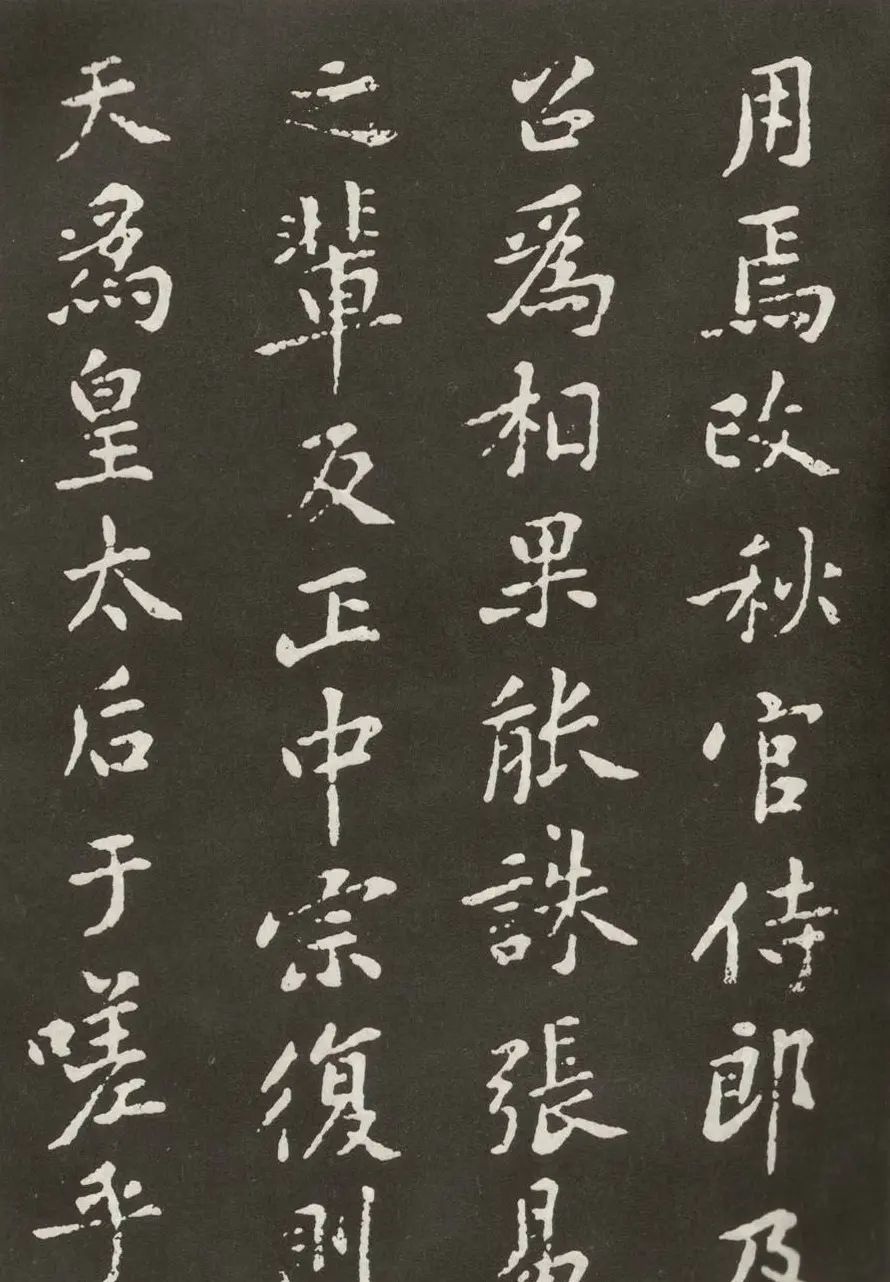 用焉改秋官侍郎及
召為相果能誅張易
之輩反正中宗復則
天為皇太后于嗟乎